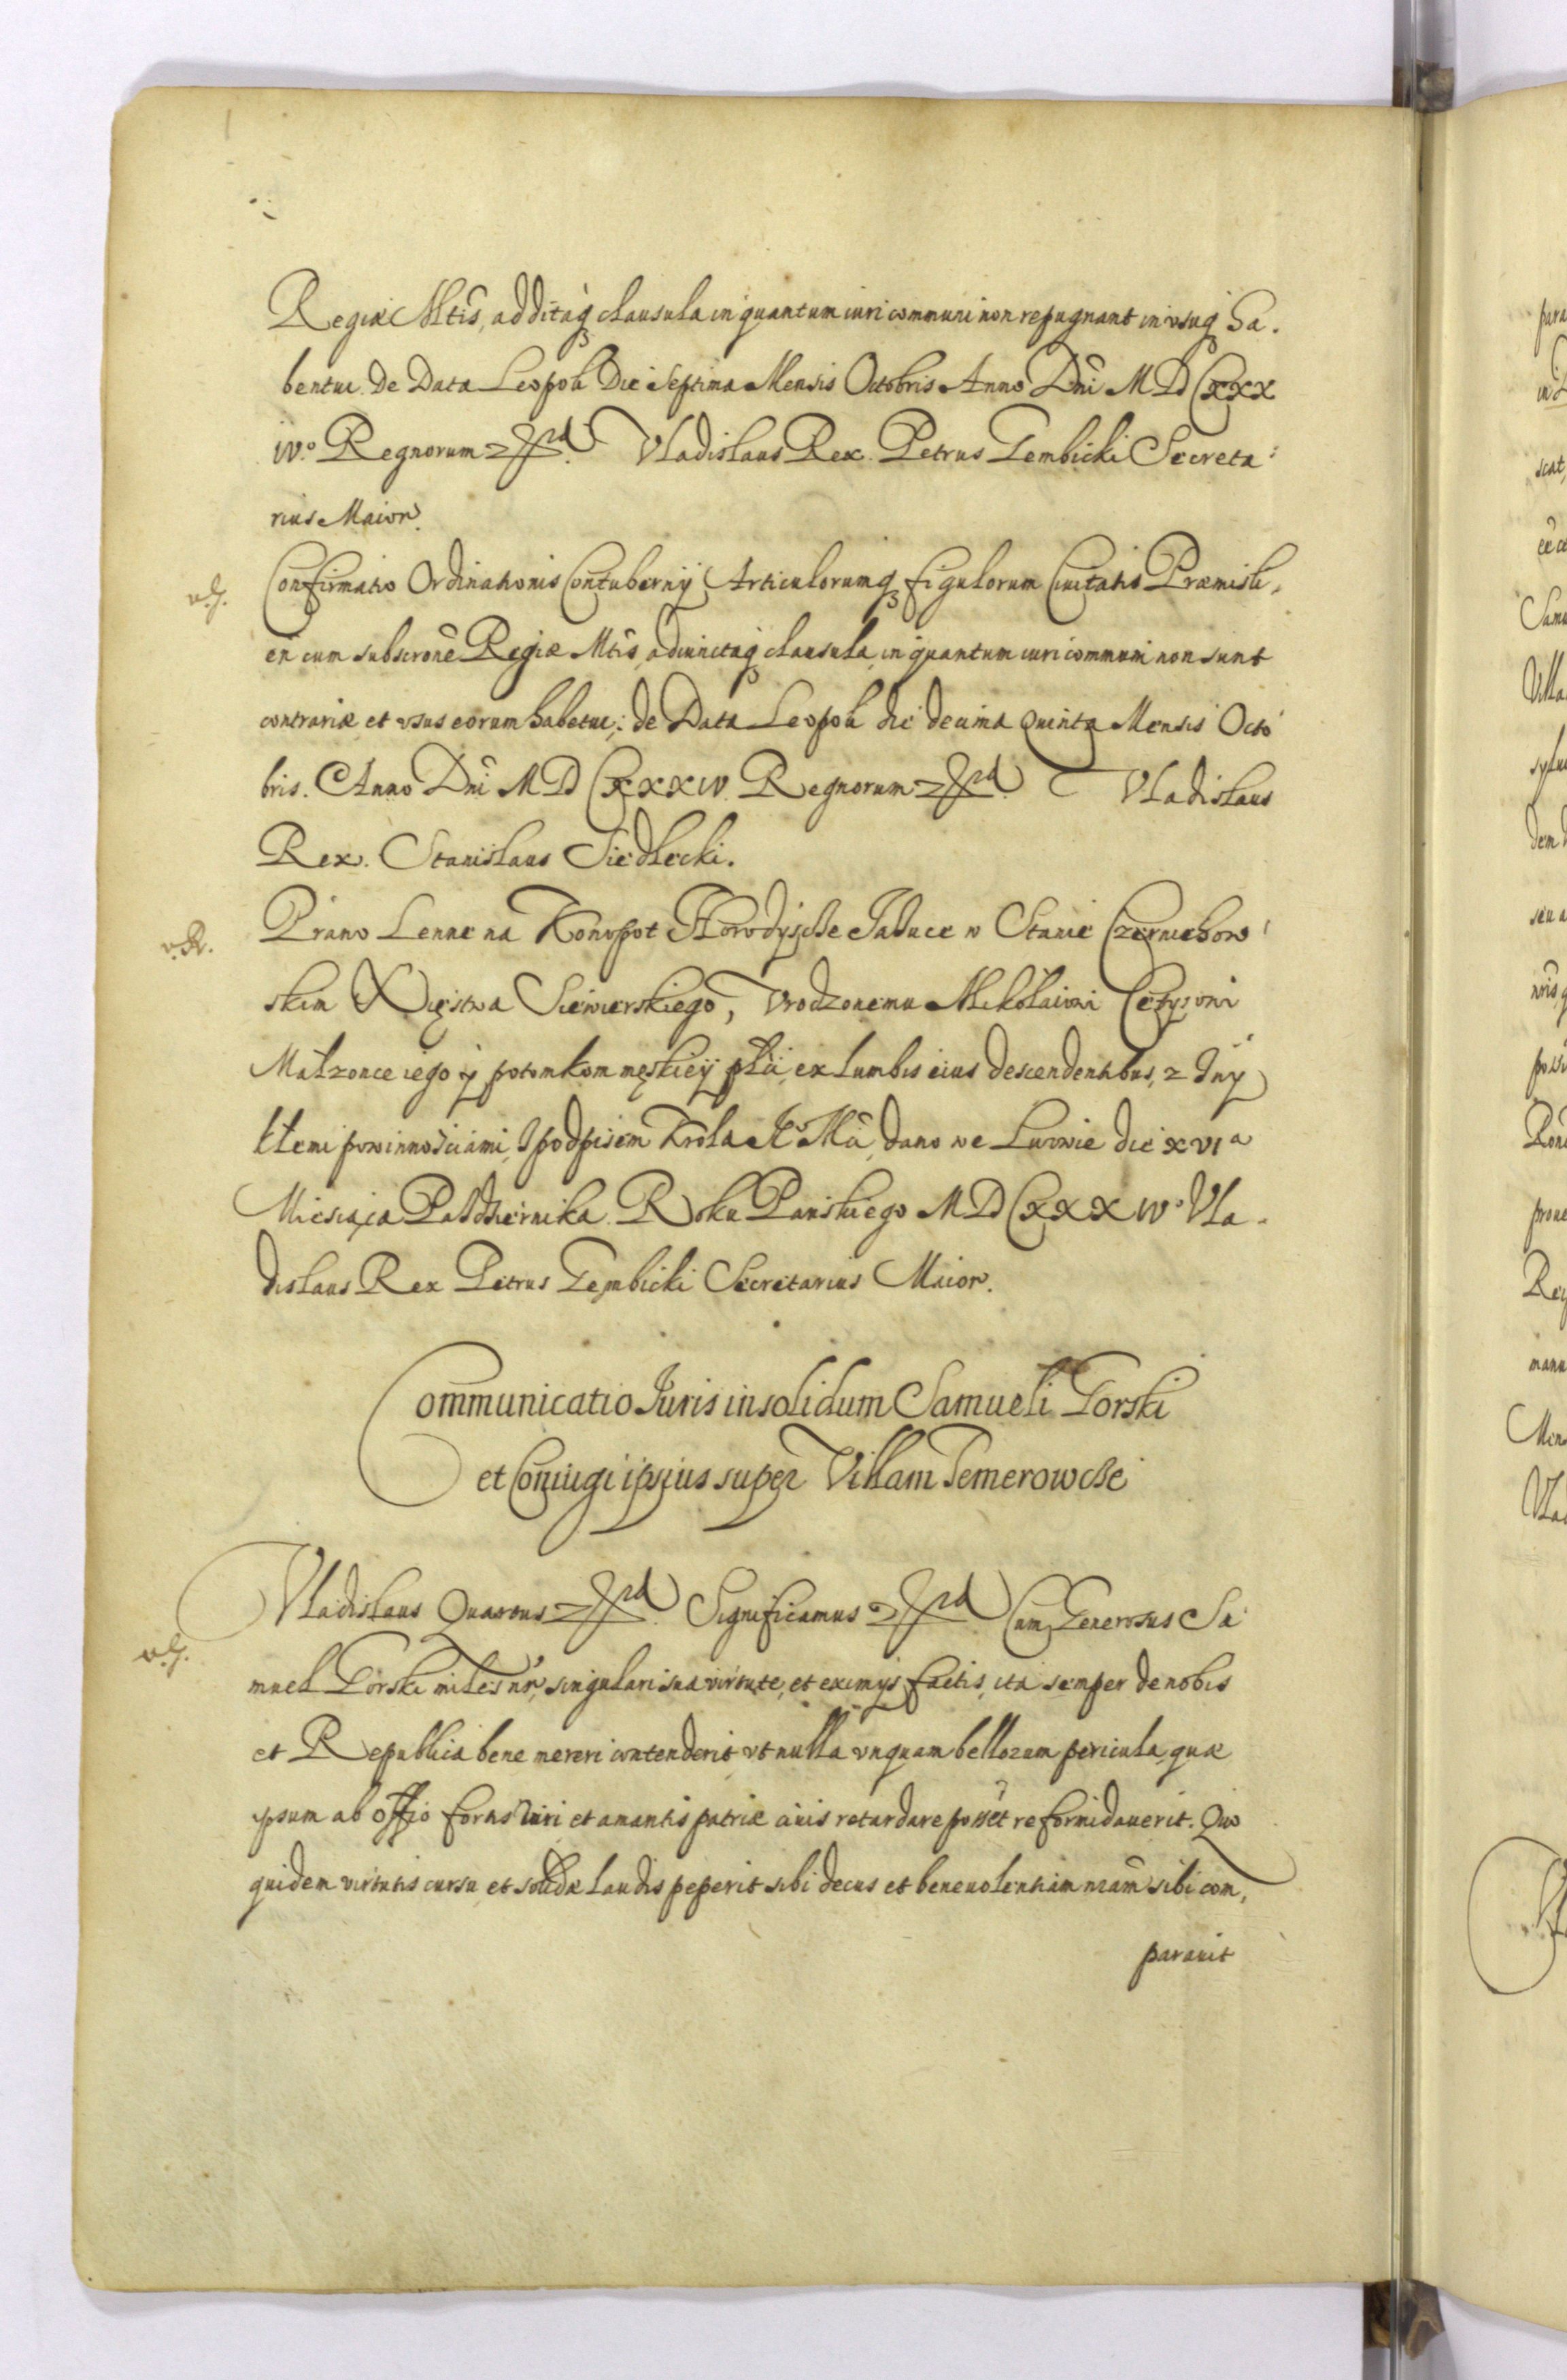 Regiæ Mtis, additaq clausula in quantum iuri communi non repugnant in usuq ha-
bentur. De Data Leopoli Die Septima Mensis Octobris Anno Dni MDCXXX
iv.o Regnorum Vladislaus Rex. Petrus Gembicki Secreta-
rius Maior.
v. G. Confirmatio Ordinationis Contubernij Articulorumq figulorum Ciuitatis Præmisli-
en cum subscrone Regiæ Mtis, adiunctaq clausula, in quantum iuri communi non sunt
contrariæ et usus eorum habetur; de Data Leopoli die decima quinta Mensis Octo
bris. Anno Dni MDCXXXIV. Regnorum Vladislaus
Rex. Stanislaus Siedlecki.
v. R. Prawo Lenne na Konopot Horodyszcze w Stanie Czerniehow-
skim Xięstwa Siewierskiego, Vrodzonemu Mikołaiowi
Małzonce iego y potomkom męskiey płci, ex lumbis eius descendentibus, z Iny
kłemi powinnosciami, S podpisem Krola Je Mci, dano we Lwowie die XVIa
Miesiąca Pazdziernika. Roku Panskiego MDCXXXIVo Vla-
dislaus Rex Petrus Gembicki Secretarius Maior.
Communicatio Iuris insolidum Samueli Gorski
et Coniugi ipsius super Villam Temerowcze
Vladislaus Quartus Significamus Cum Generosus Sa
v. G. muel Gorski miles nr, singulari sua virtute, et eximijs factis, ita semper de nobis
et Republica bene mereri contenderit, ut nulla unquam bellorum pericula, quæ
ipsum ab offio fortis viri et amantis patriæ ciuis retardare possēt reformidauerit. Quo
quidem virtutis cursu et solidæ laudis peperit sibi decus et beneuolentiam nram sibi com,
parauit